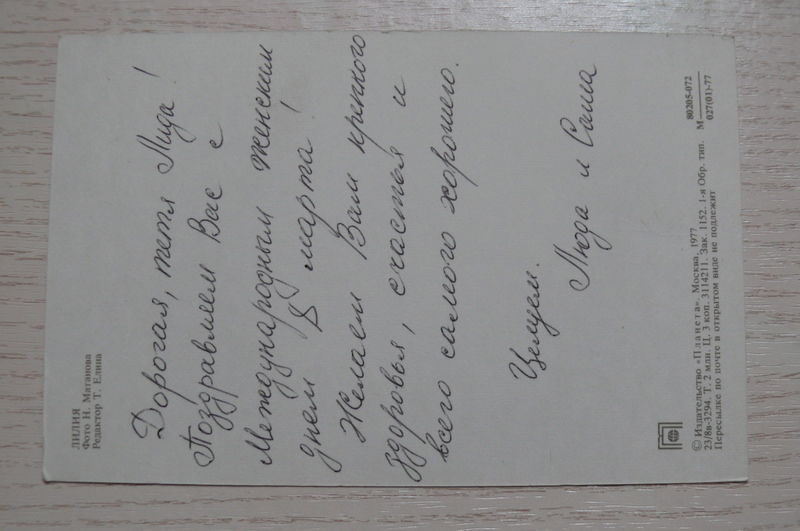 ЛИЛИЯ
Фото Н. Матанова
Редактор Т. Елина
Дорогая, тетя Лида!
Поздравляем Вас с
Международным женским
днем 8 марта!
Желаем Вам крепкого
здоровья, счастья и
всего самого хорошего.
Целуем.
Люда и Саша
© Издательство «Планета». Москва. 1977
23/8в-3294. Т. 2 млн. Ц. 3 коп. 3114211. Зак. 1152. 1-я Обр. тип.
Пересылке по почте в открытом виде не подлежит
80205-072
М
027(01)-77